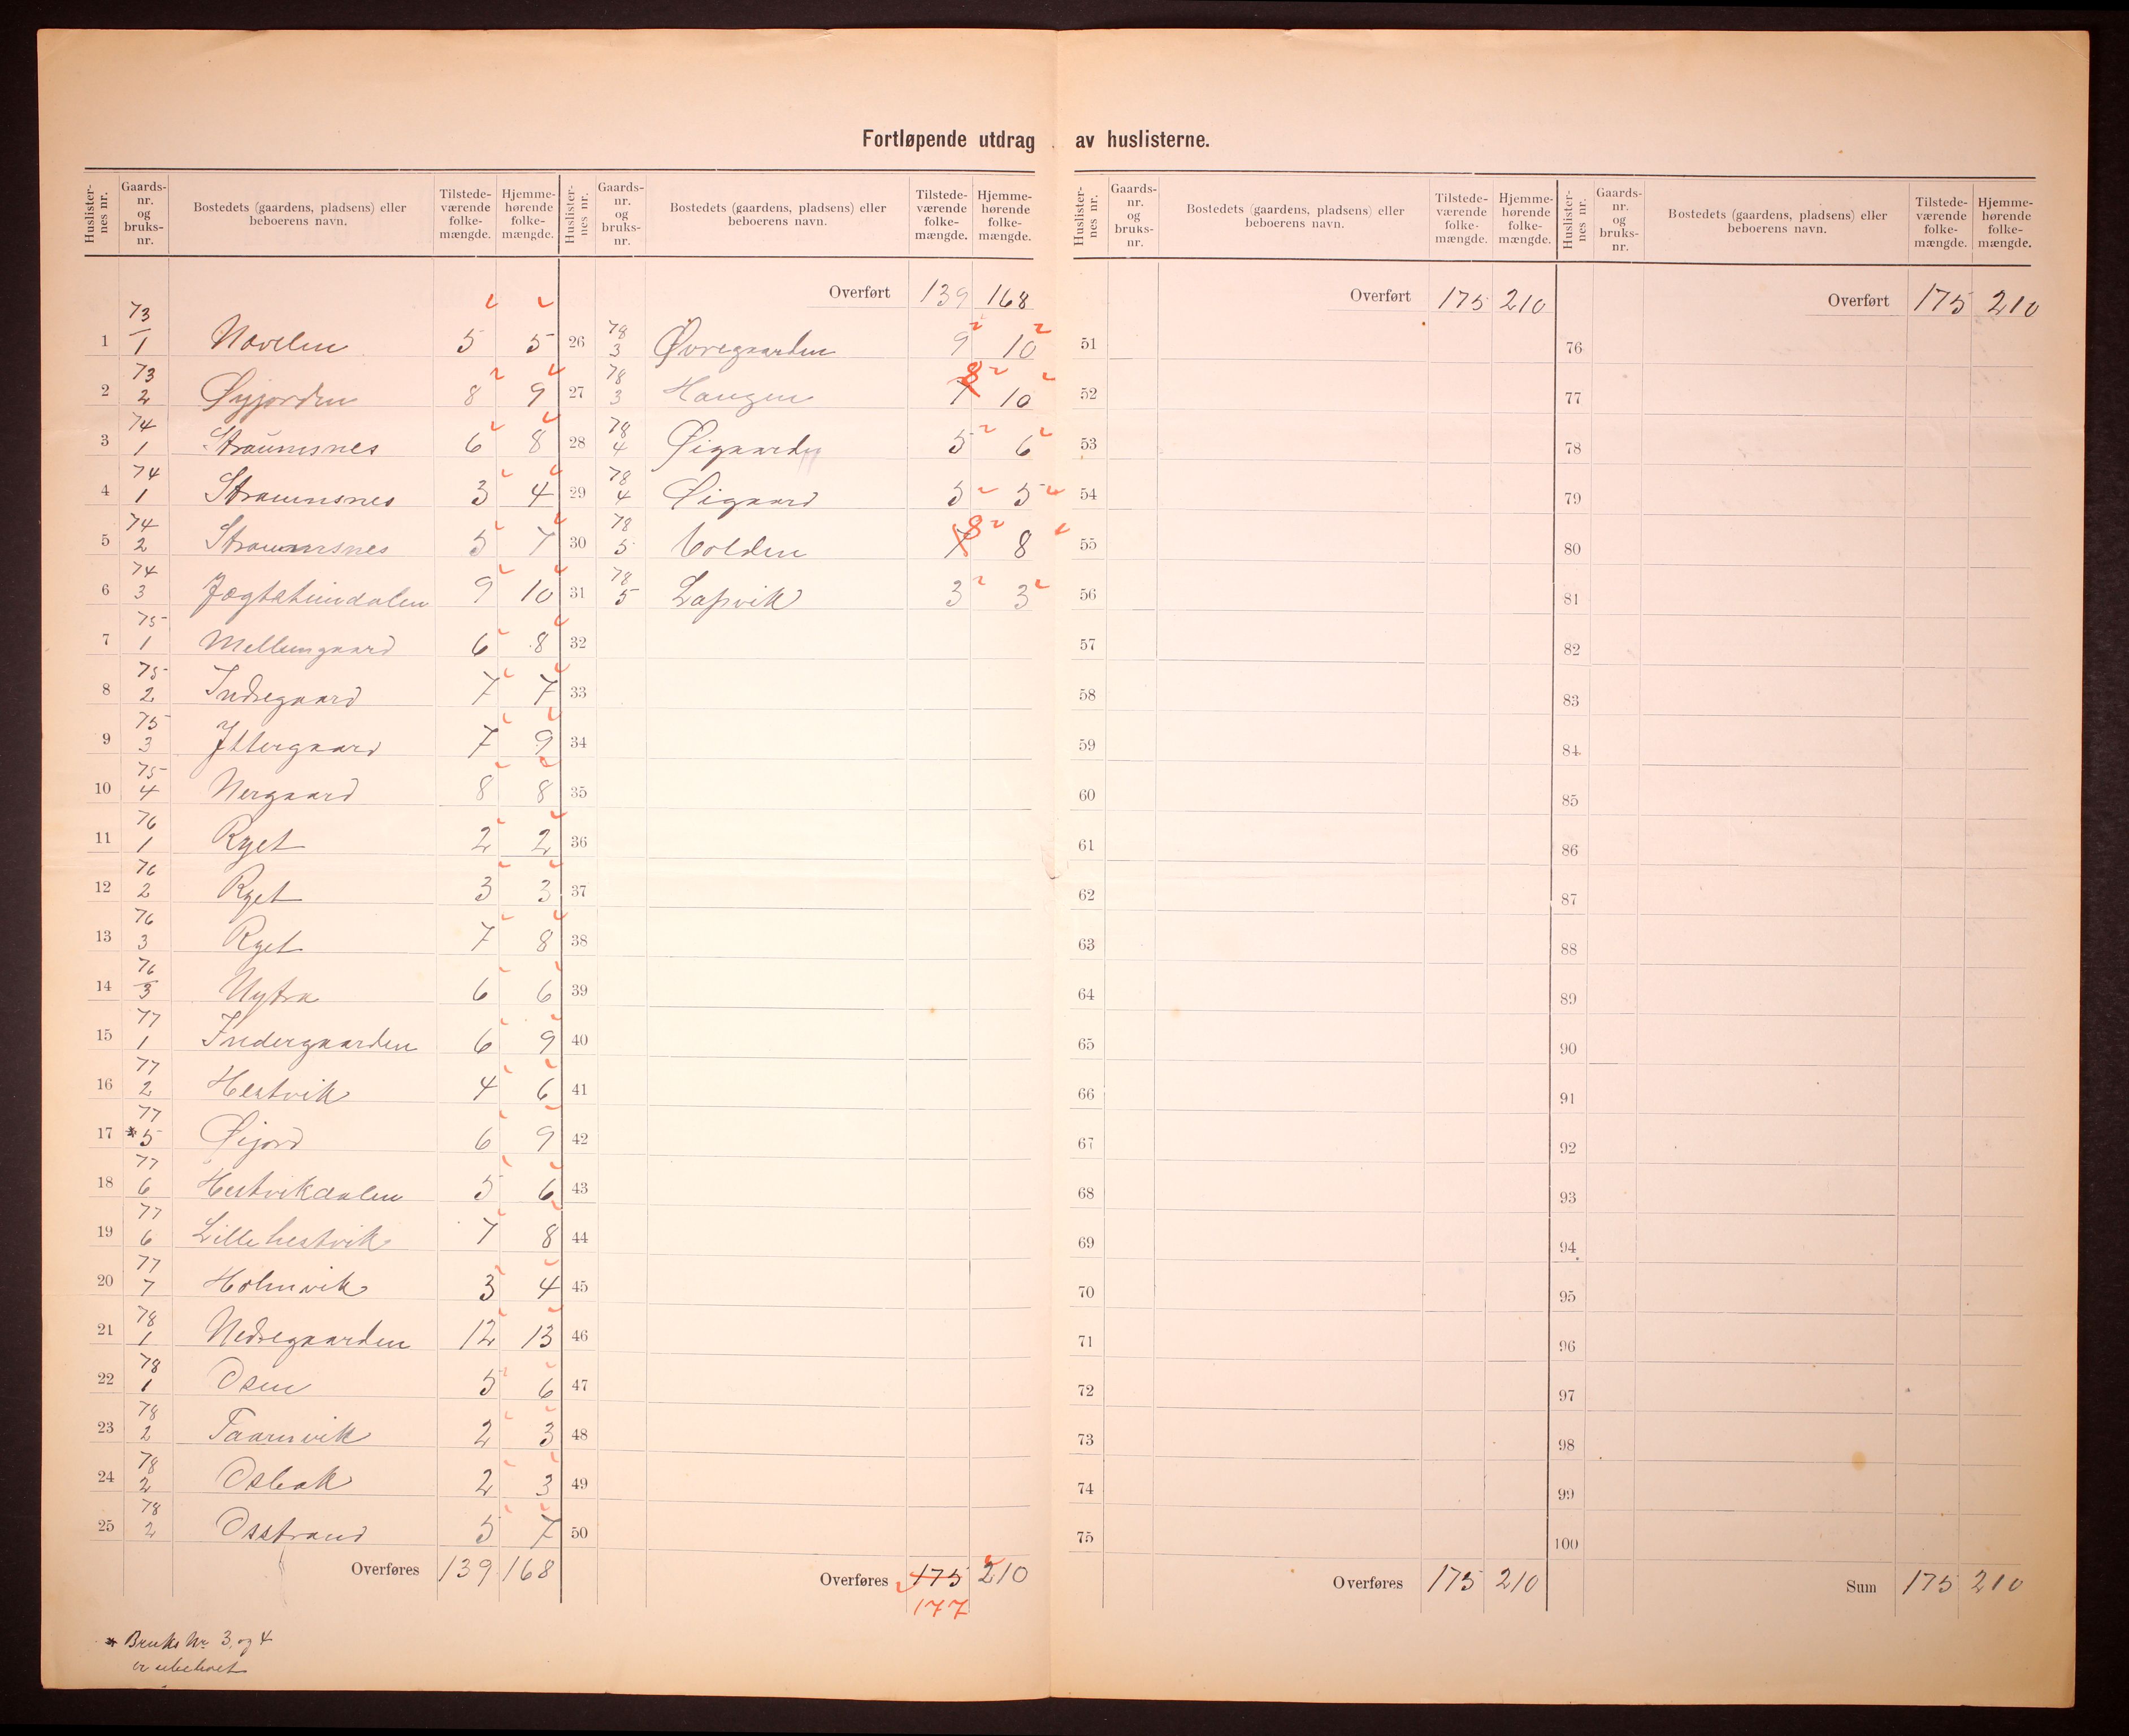 Fortløpende utdrag av huslisterne.
Huslisternes nr. Gaards-nr. og bruks-nr. Bostedets (gaardens, pladsens) eller beboerens navn. Tilstede-værende folke-mængde. Hjemme-hørende folke-mængde.
1 73/1 Novelen 5 5
2 73/2 Øyjorden 8 9
3 74/1 Straumsnes 6 8
4 74/1 Straumsnes 3 4
5 74/2 Straumsnes 5 7
6 74/3 Jægtstuindalen 9 10
7 75/1 Mellemgaard 6 8
8 75/2 Indregaard 7 7
9 75/3 Ittergaard 7 9
10 75/4 Nergaard 8 8
11 76/1 Ryet 2 2
12 76/2 Ryet 3 3
13 76/3 Ryet 7 8
14 76/3 Nytra 6 6
15 77/1 Indergaarden 6 9
16 77/2 Hestvik 4 6
17 77/*5 Øijord 6 9
18 77/6 Hestvikdalen 5 6
19 77/6 Lille hestvik 7 8
20 77/7 Holmvik 3 4
21 78/1 Nedregaarden 12 13
22 78/1 Osen 5 6
23 78/2 Taarnvik 2 3
24 78/2 Osbak 2 3
25 78/2 Osstrand 5 7
Overføres 139 168
* Bruks Nr 3, og 4
er ubeboet
Huslisternes nr. Gaards-nr. og bruks-nr. Bostedets (gaardens, pladsens) eller beboerens navn. Tilstede-værende folke-mængde. Hjemme-hørende folke-mængde.
Overført 139 168
26 78/3 Øvregaarden 9 10
27 78/3 Haugen 7 8 10
28 78/4 Øigaarden 5 6
29 78/4 Øigaard 5 5
30 78/5 Volden 7 8 8
31 78/5 Lapvik 3 3
32
33
34
35
36
37
38
39
40
41
42
43
44
45
46
47
48
49
50
Overføres 175 210
177
Huslisternes nr. Gaards-nr. og bruks-nr. Bostedets (gaardens, pladsens) eller beboerens navn. Tilstede-værende folke-mængde. Hjemme-hørende folke-mængde.
Overført 175 210
51
52
53
54
55
56
57
58
59
60
61
62
63
64
65
66
67
68
69
70
71
72
73
74
75
Overføres 175 210
Huslisternes nr. Gaards-nr. og bruks-nr. Bostedets (gaardens, pladsens) eller beboerens navn. Tilstede-værende folke-mængde. Hjemme-hørende folke-mængde.
Overført 175 210
76
77
78
79
80
81
82
83
84
85
86
87
88
89
90
91
92
93
94
95
96
97
98
99
100
Sum 175 210